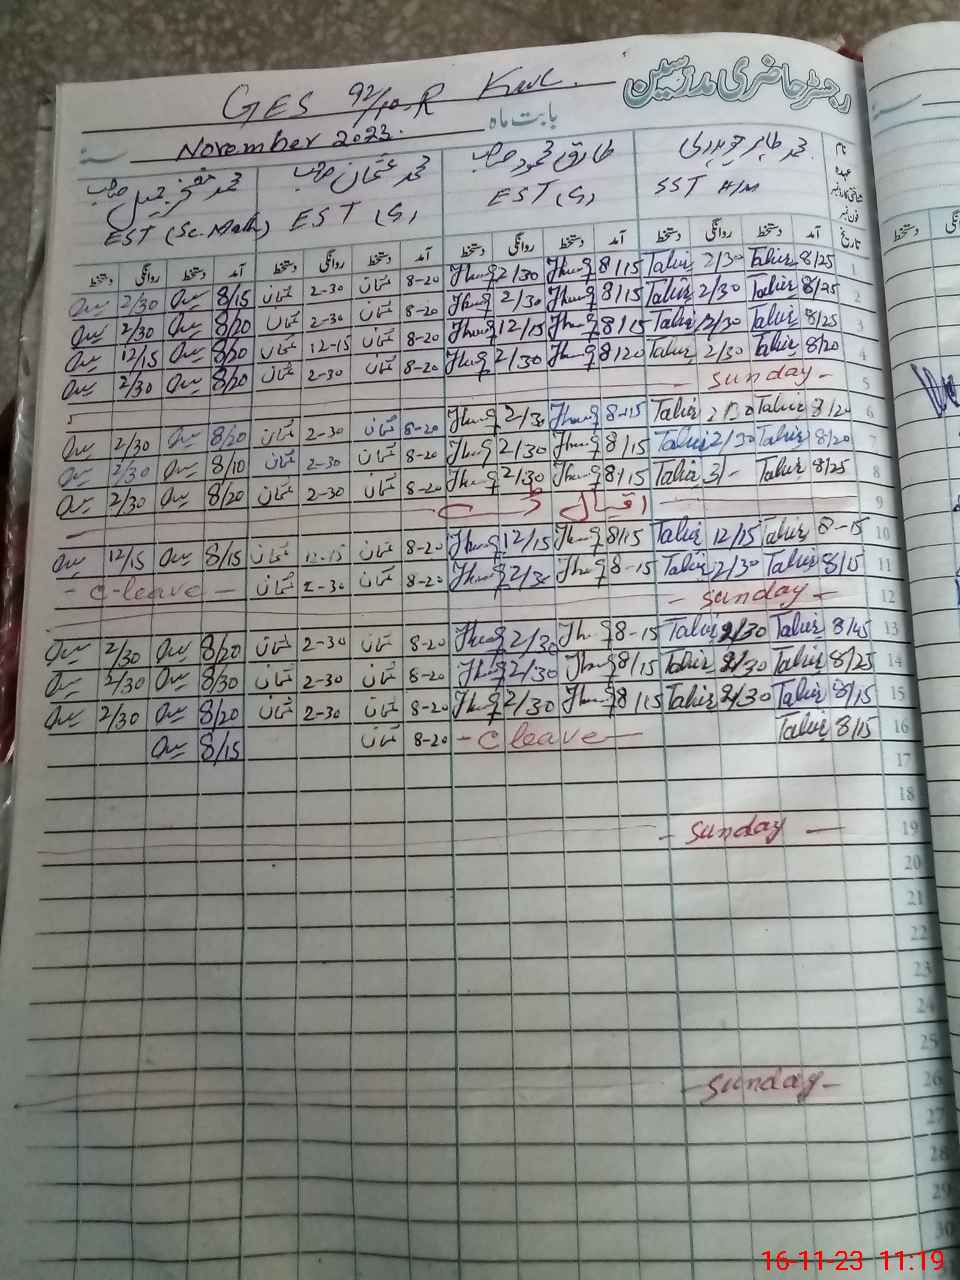 رجسٹر حاضری مدرسین
GES 92/10-R Kwl.
بابت ماہ November 2023. سنہ
نام محمد طاہر حیدری طارق محمود صاحب محمد عثمان صاحب محمد جمیل صاحب
عہدہ SST H/M EST (G) EST (G) EST (Sc. Math)
شناختی کارڈ نمبر
فون نمبر
تاریخ آمد دستخط روانگی دستخط آمد دستخط روانگی دستخط آمد دستخط روانگی دستخط آمد دستخط روانگی دستخط
1 8/25 Tahir 2/30 Tahir 8/15 2/30 8-20 عثمان 2-30 عثمان 8/15 2/30
2 8/25 Tahir 2/30 Tahir 8/15 2/30 8-20 عثمان 2-30 عثمان 8/20 2/30
3 8/25 Tahir 12/30 Tahir 8/15 12/15 8-20 عثمان 12-15 عثمان 8/20 12/15
4 8/20 Tahir 2/30 Tahir 8/20 2/30 8-20 عثمان 2-30 عثمان 8/20 2/30
5 - sunday -
6 8/20 Tahir 2/30 Tahir 8-15 2/30 8-20 عثمان 2-30 عثمان 8/20 2/30
7 8/20 Tahir 2/30 Tahir 8/15 2/30 8-20 عثمان 2-30 عثمان 8/10 2/30
8 8/25 Tahir 3/- Tahir 8/15 2/30 8-20 عثمان 2-30 عثمان 8/20 2/30
9 اقبال ڈے
10 8-15 Tahir 12/15 Tahir 8/15 12/15 8-20 عثمان 12-15 عثمان 8/15 12/15
11 8/15 Tahir 2/30 Tahir 8-15 2/30 8-20 عثمان 2-30 عثمان - C-leave -
12 - sunday -
13 8/45 Tahir 2/30 Tahir 8-15 2/30 8-20 عثمان 2-30 عثمان 8/20 2/30
14 8/25 Tahir 2/30 Tahir 8/15 2/30 8-20 عثمان 2-30 عثمان 8/30 2/30
15 8/15 Tahir 2/30 Tahir 8/15 2/30 8-20 عثمان 2-30 عثمان 8/20 2/30
16 8/15 Tahir - C leave - 8-20 عثمان 8/15
17
18
19 - sunday -
20
21
22
23
24
25
26 - sunday -
27
28
29
30
16-11-23 11:19